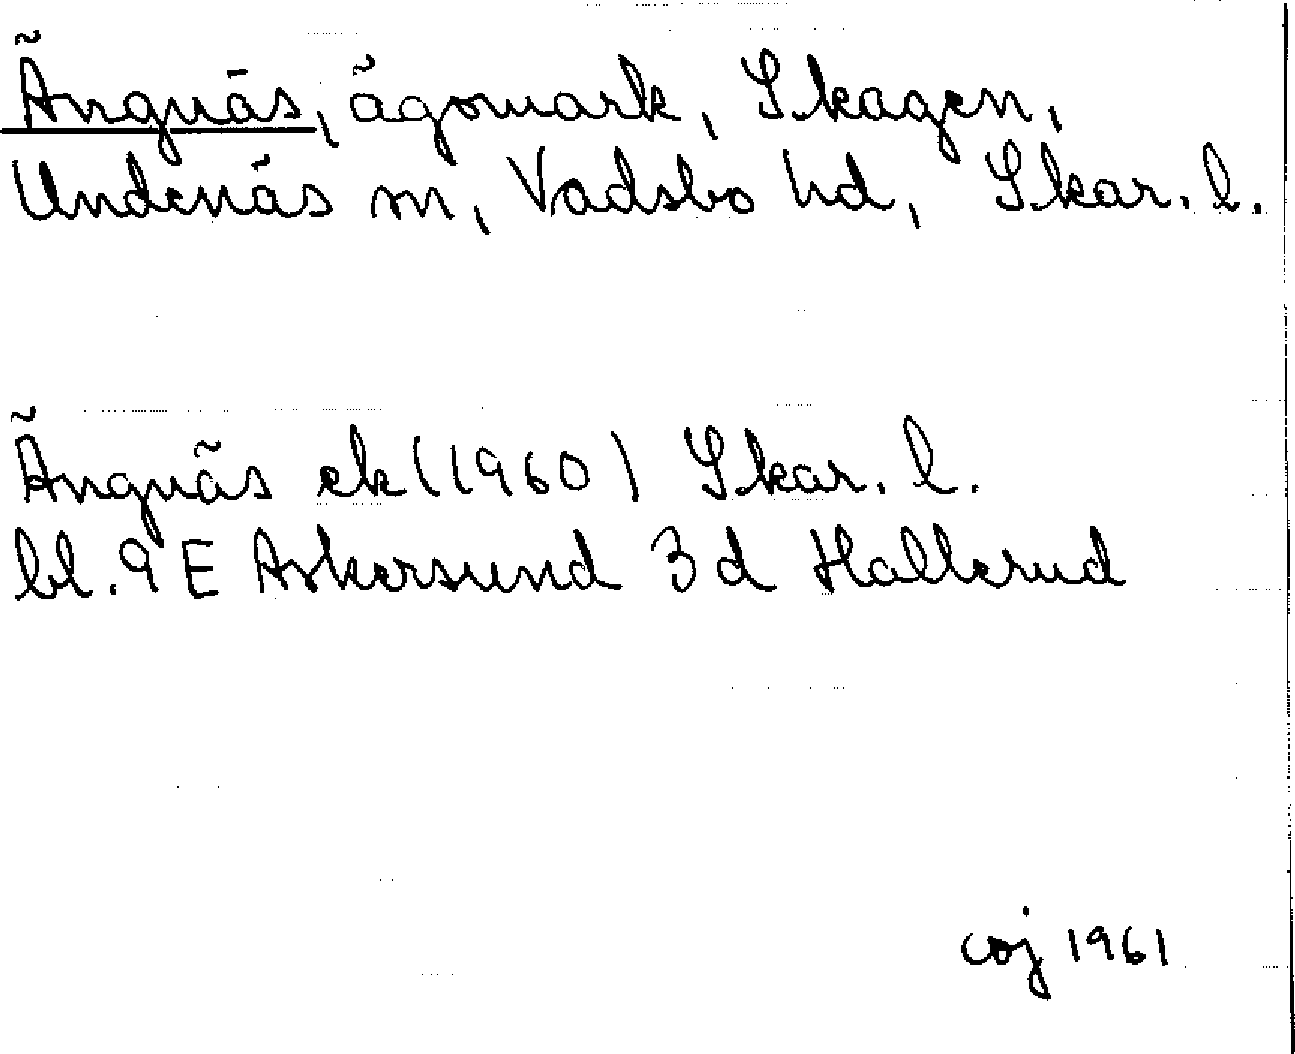 Ängnäs, ägomark, Skagen,
Undenäs sn, Vadsbo hd, Skar. l.
Ängnäs ek (1960) Skar. l.
bl. 9 E Askersund 3 d Hallerud
coj 1961